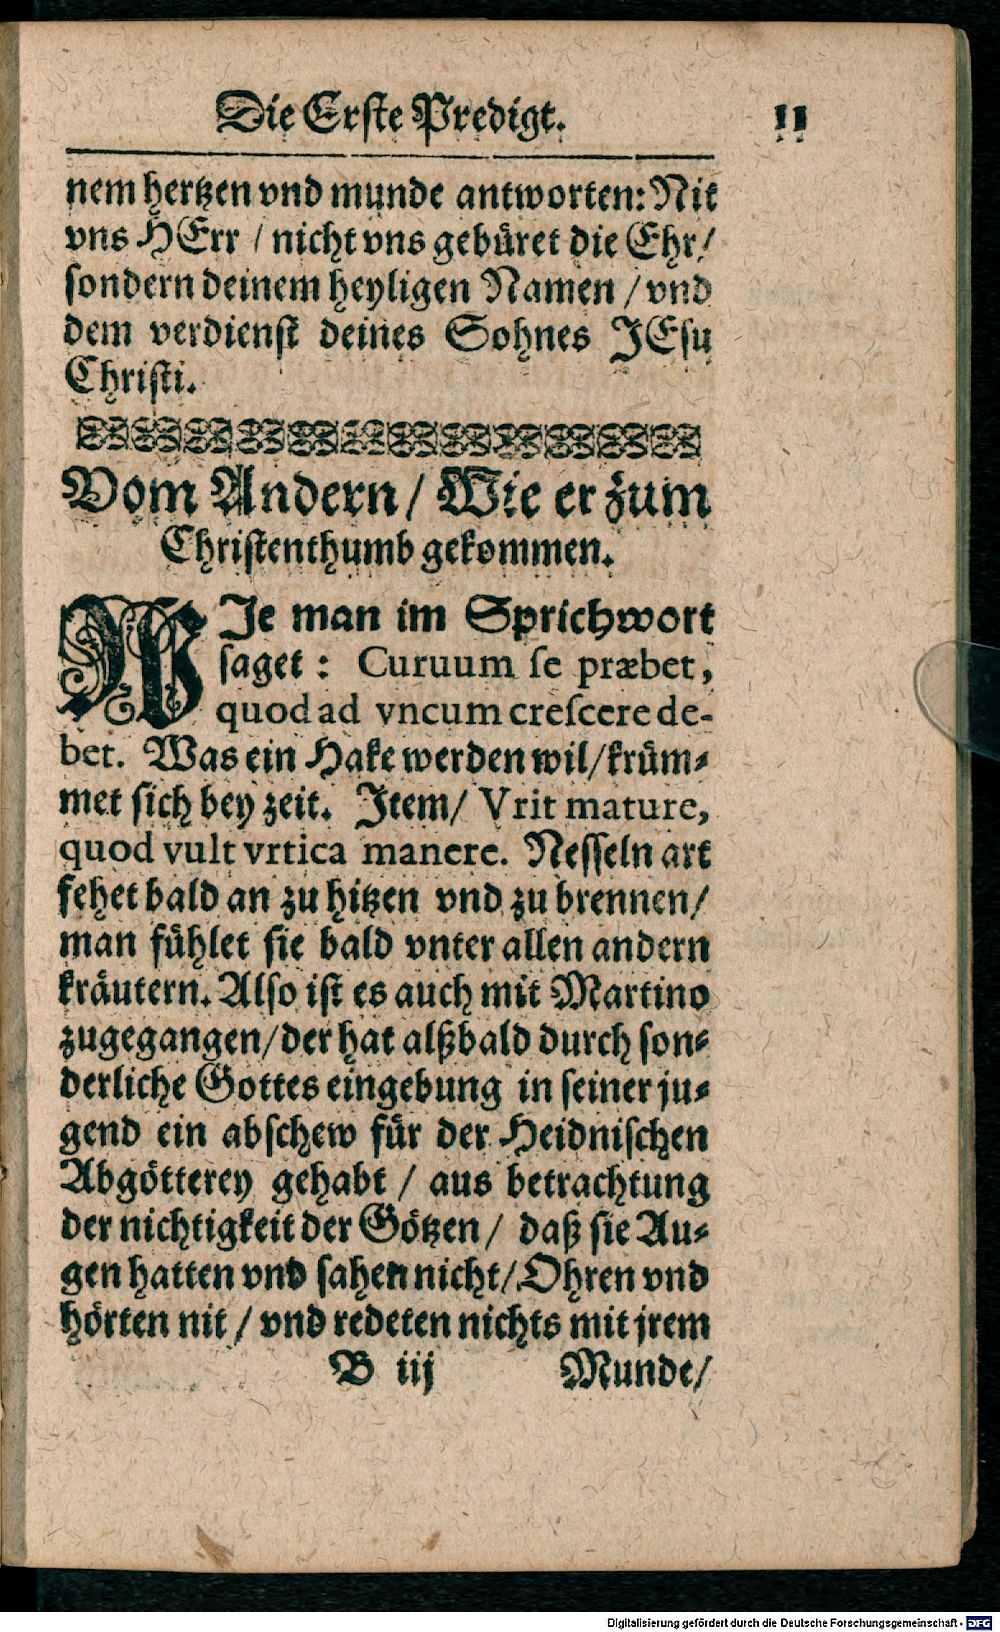 Die Erste Predigt. 11
nem hertzen vnd munde antworten: Nit
vns HErr / nicht vns gebüret die Ehr/
sondern deinem heyligen Namen / vnd
dem verdienst deines Sohnes JEsu
Christi.
Vom Andern / Wie er zum
Christenthumb gekommen.
WJe man im Sprichwort
saget: Curuum se præbet,
quod ad vncum crescere de-
bet. Was ein Hake werden wil/krüm-
met sich bey zeit. Jtem/ Vrit mature,
quod vult vrtica manere. Nesseln art
fehet bald an zu hitzen vnd zu brennen/
man fühlet sie bald vnter allen andern
kräutern. Also ist es auch mit Martino
zugegangen/der hat alßbald durch son-
derliche Gottes eingebung in seiner ju-
gend ein abschew für der Heidnischen
Abgötterey gehabt / aus betrachtung
der nichtigkeit der Götzen / daß sie Au-
gen hatten vnd sahen nicht/Ohren vnd
hörten nit / vnd redeten nichts mit jrem
B iij Munde/
Digitalisierung gefördert durch die Deutsche Forschungsgemeinschaft - DFG